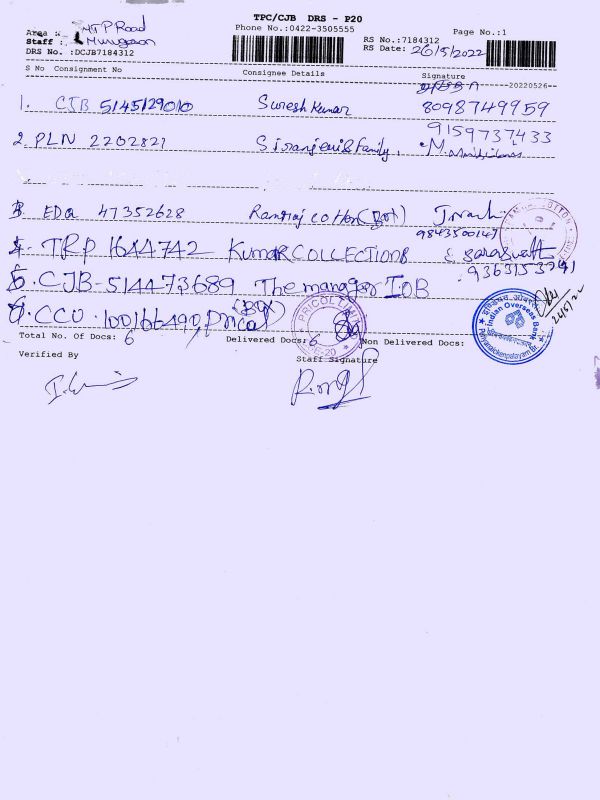 TPC/CJB DRS - P20
Phone No.:0422-3505555
Page No.:1
Area : MTP Road
Staff : Murugesan
DRS No. :DCJB7184312
RS No.:7184312
RS Date: 26/5/2022
S No Consignment No Consignee Details Signature
20220526
1. CJB 514529010 Suresh Kumar 8098749959
9159737433
2. PLN 2202821 & Family,
3. EDA 47352628 Ramraj Cotton (Box)
9843500147
4. TRP 1644742 KUMAR COLLECTIONS Saraswathi
9363153241
5. CJB 514473689 The manager IOB
6. CCU 100166490 Pricol (Box)
PRICOL LIMITED
इंडियन ओवरसीज़ बैंक
Indian Overseas Bank
26/5/22
Total No. Of Docs: 6 Delivered Docs: 6 Non Delivered Docs:
Verified By Staff Signature